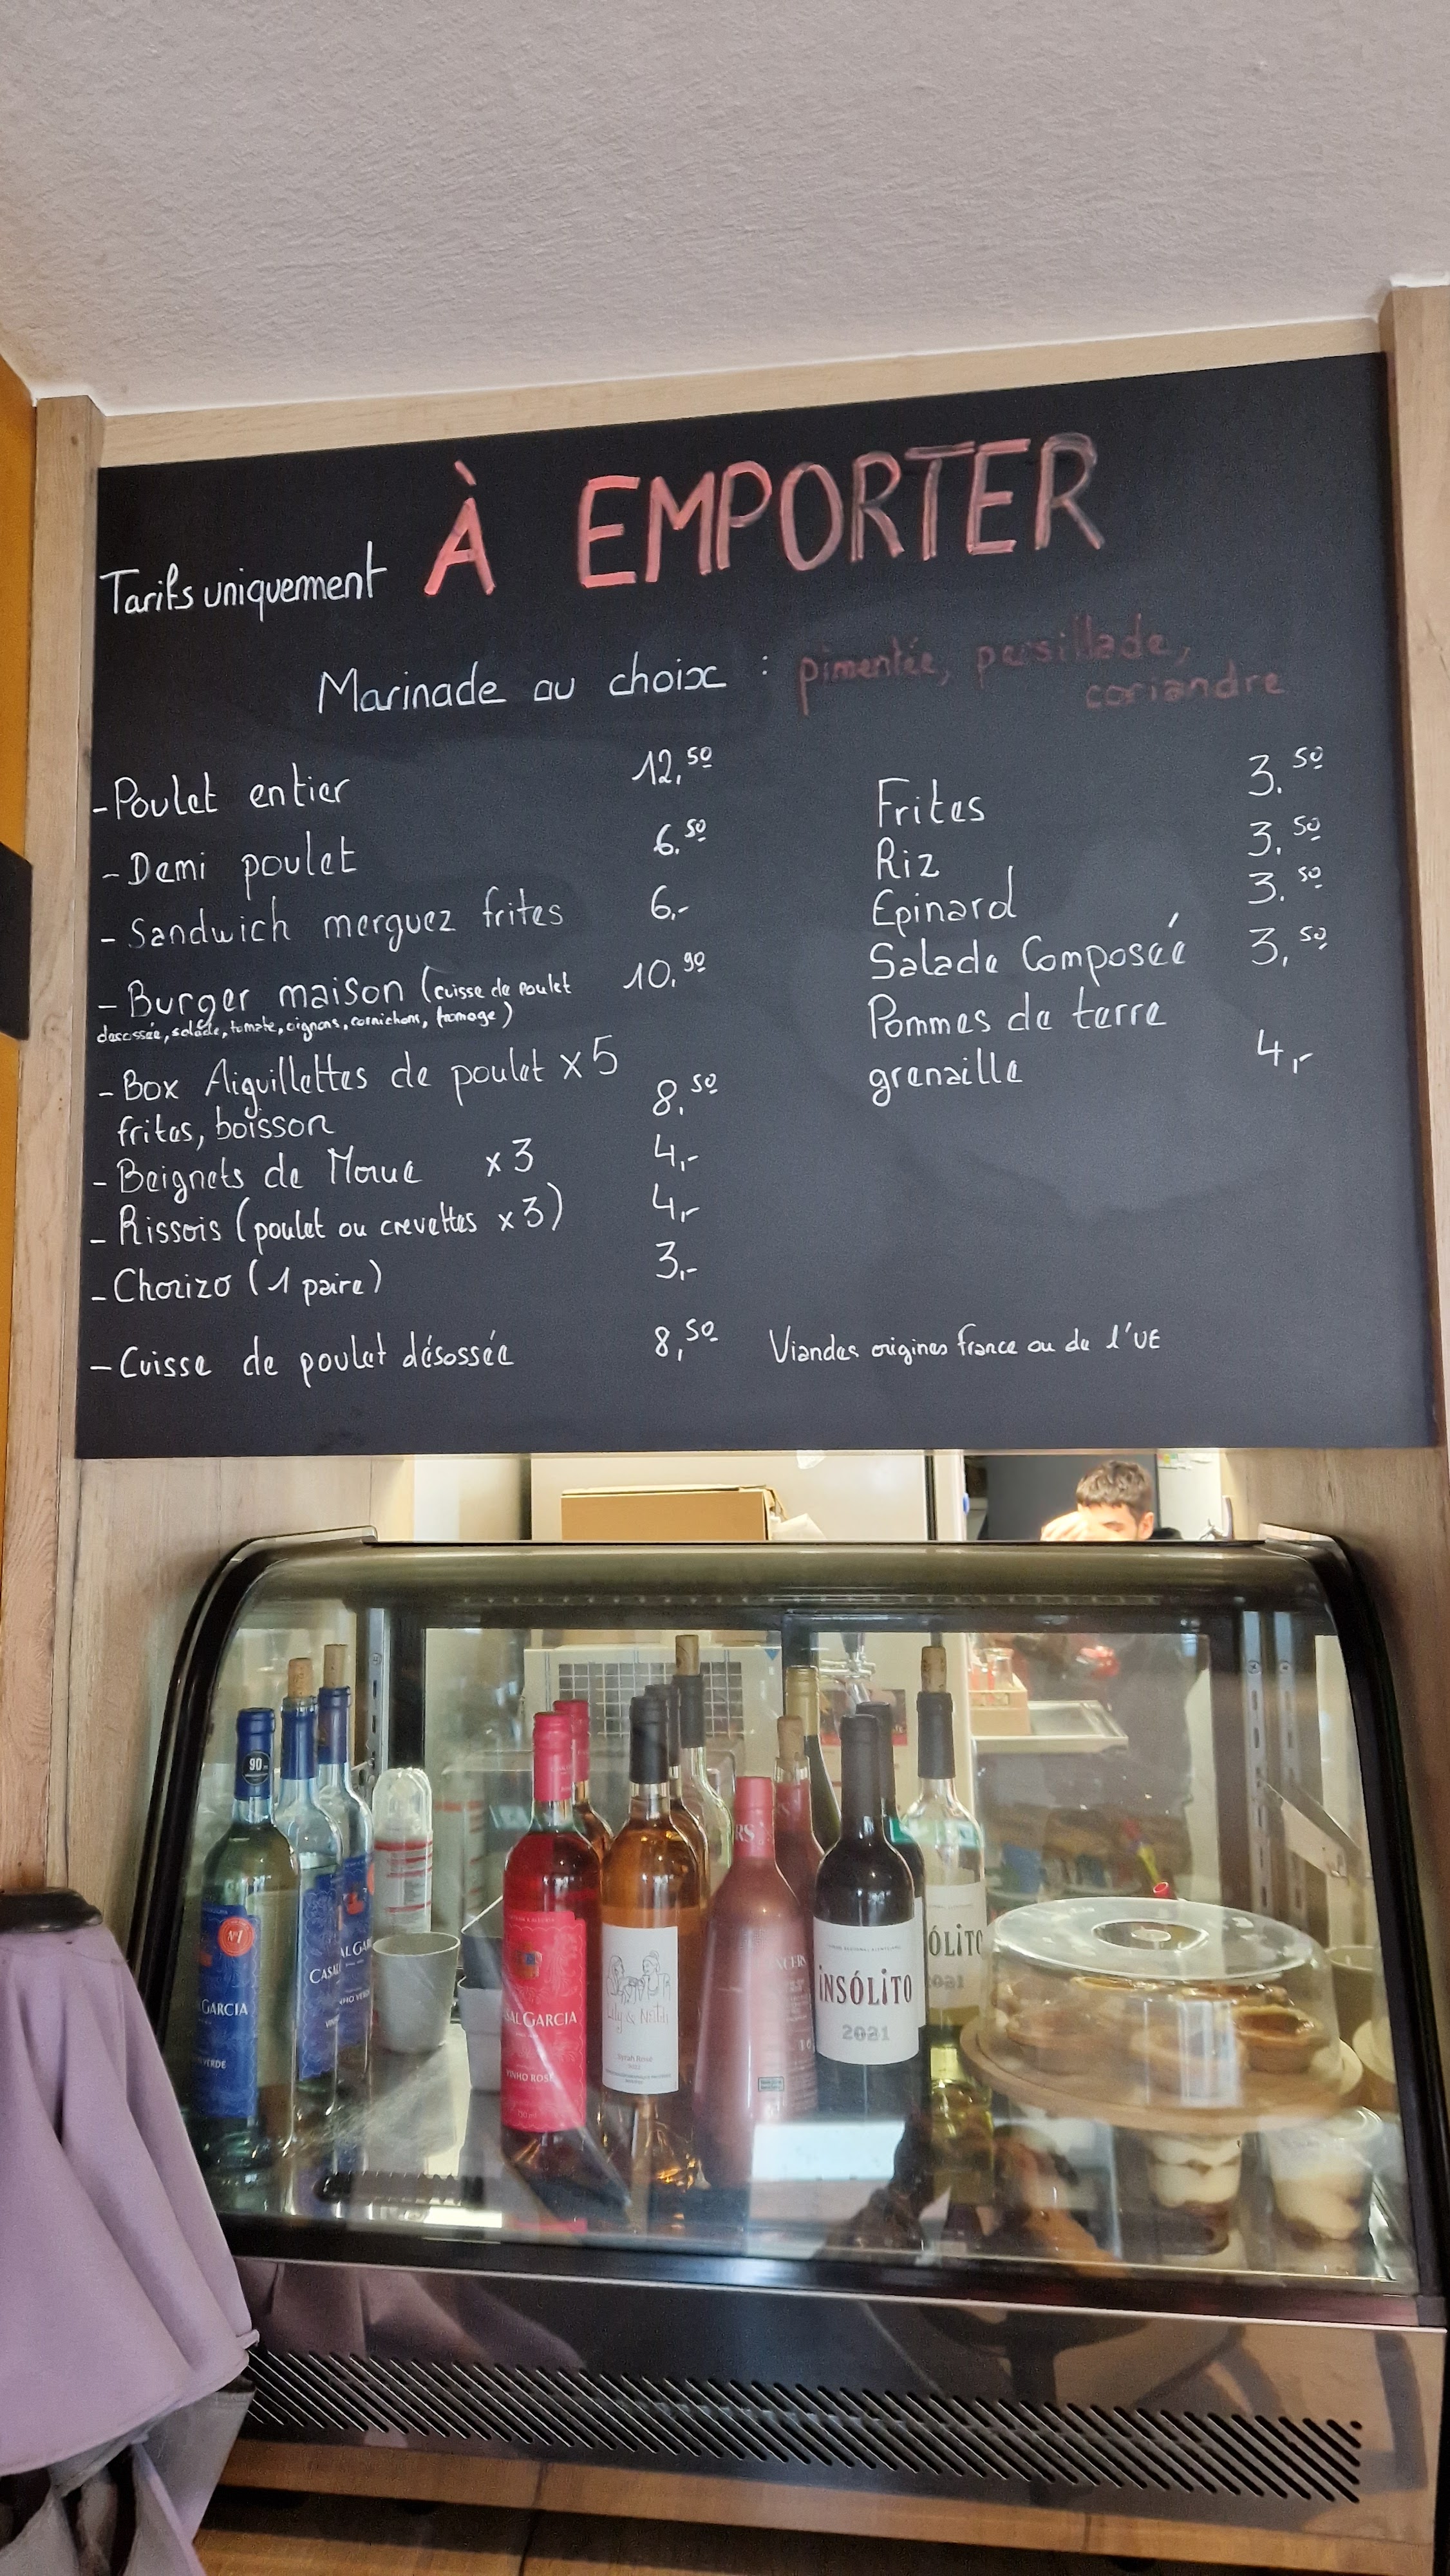 À EMPORTER
Tarifs uniquement
Marinade au choix : pimentée, persillade,
coriandre
- Poulet entier 12,50
- Demi poulet 6.50
- Sandwich merguez frites 6.-
- Burger maison (cuisse de poulet 10.90
desossée, salade, tomate, oignons, cornichons, fromage)
- Box Aiguillettes de poulet x5
frites, boisson 8.50
- Beignets de Morue x3 4,-
- Rissois (poulet ou crevettes x3) 4,-
- Chorizo (1 paire) 3,-
- Cuisse de poulet désossée 8,50
Frites 3.50
Riz 3.50
Epinard 3.50
Salade Composée 3,50
Pommes de terre
grenaille 4,-
Viandes origines france ou de l'UE
90
N°1
GARCIA
VERDE
CASAL GARCIA
VINHO VERDE
CASAL GARCIA
VINHO ROSÉ
Lily & Nath
Syrah Rosé
INSÓLITO
2021
ÓLITO
2021